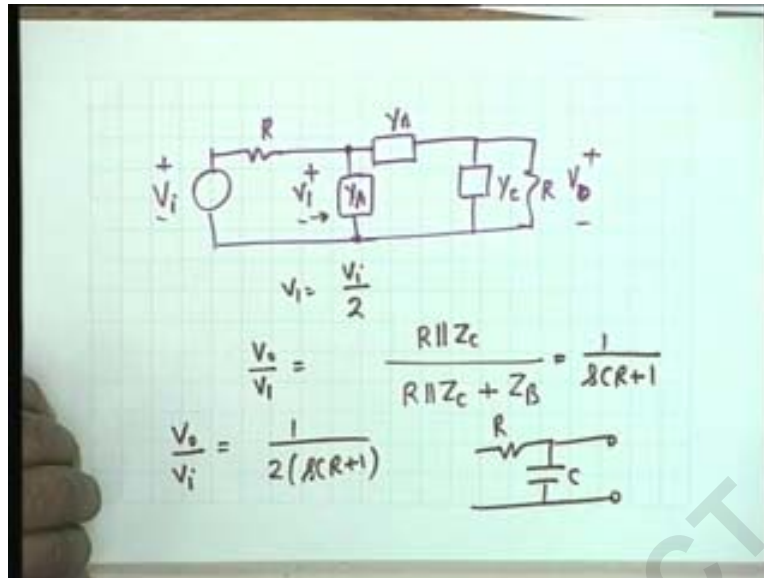 R
YA
+
Vi
-
+
V1
- →
YA
Yc
R
+
Vo
-
V1 = Vi/2
Vo/V1 = R||Zc / (R||Zc + ZB) = 1/(sCR+1)
Vo/Vi = 1/(2(sCR+1))
R
C
CT